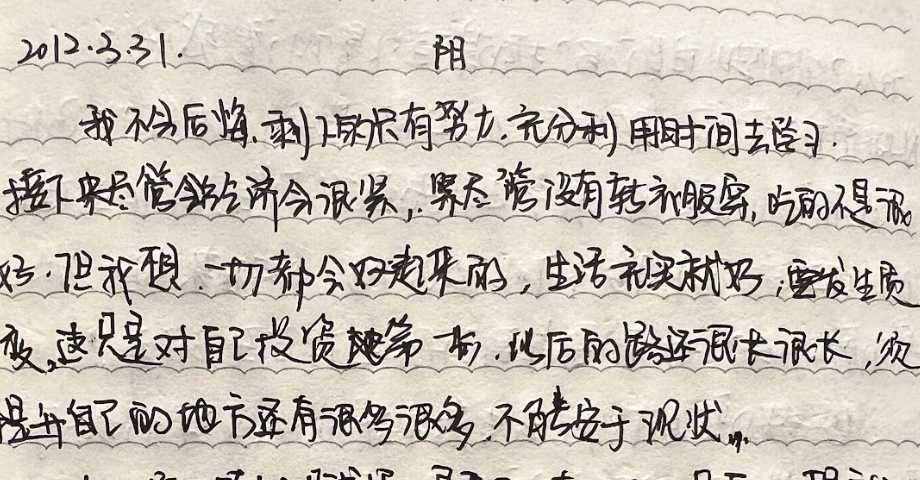 2012.3.31. 阴
我不会后悔.剩下的只有努力.充分利用时间去学习.
接下来尽管会经济会很紧,尽管没有转衣服穿,吃的不是很
好.但我想.一切都会好起来的,生活充实就好,要发生质
变,这只是对自己投资第一步.以后的路还很长很长,须
提升自己的地方还有很多很多.不能安于现状